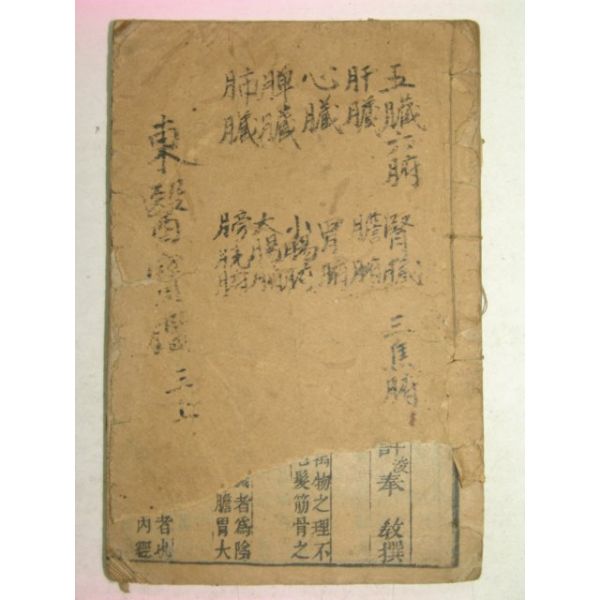 五臟六腑
肝臟
心臟
脾臟
肺臟
腎臟
膽腑
胃腑
小腸腑
大腸腑
膀胱腑
三焦腑
東醫寶鑑 三
許浚奉 敎撰
萬物之理不
毛髮筋骨之
者爲陰
膽胃大
者也
內經